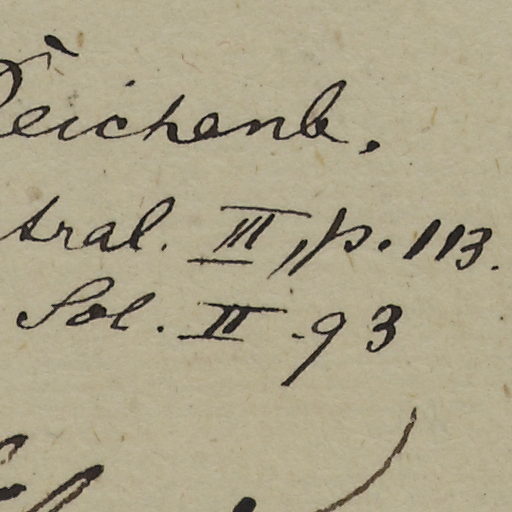 Reichenb.
tral. III, p. 113.
Sol. II. 93